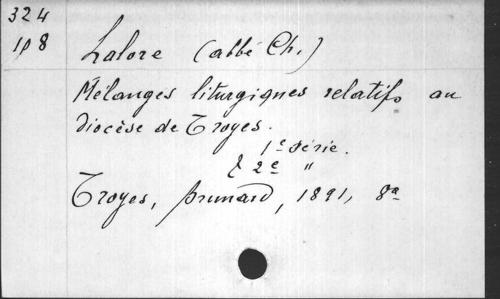 324
108
Lalore (abbé Ch.)
Mélanges liturgiques relatifs au
diocèse de Troyes.
1e Série.
& 2e "
Troyes, Brunard, 1891, 8a